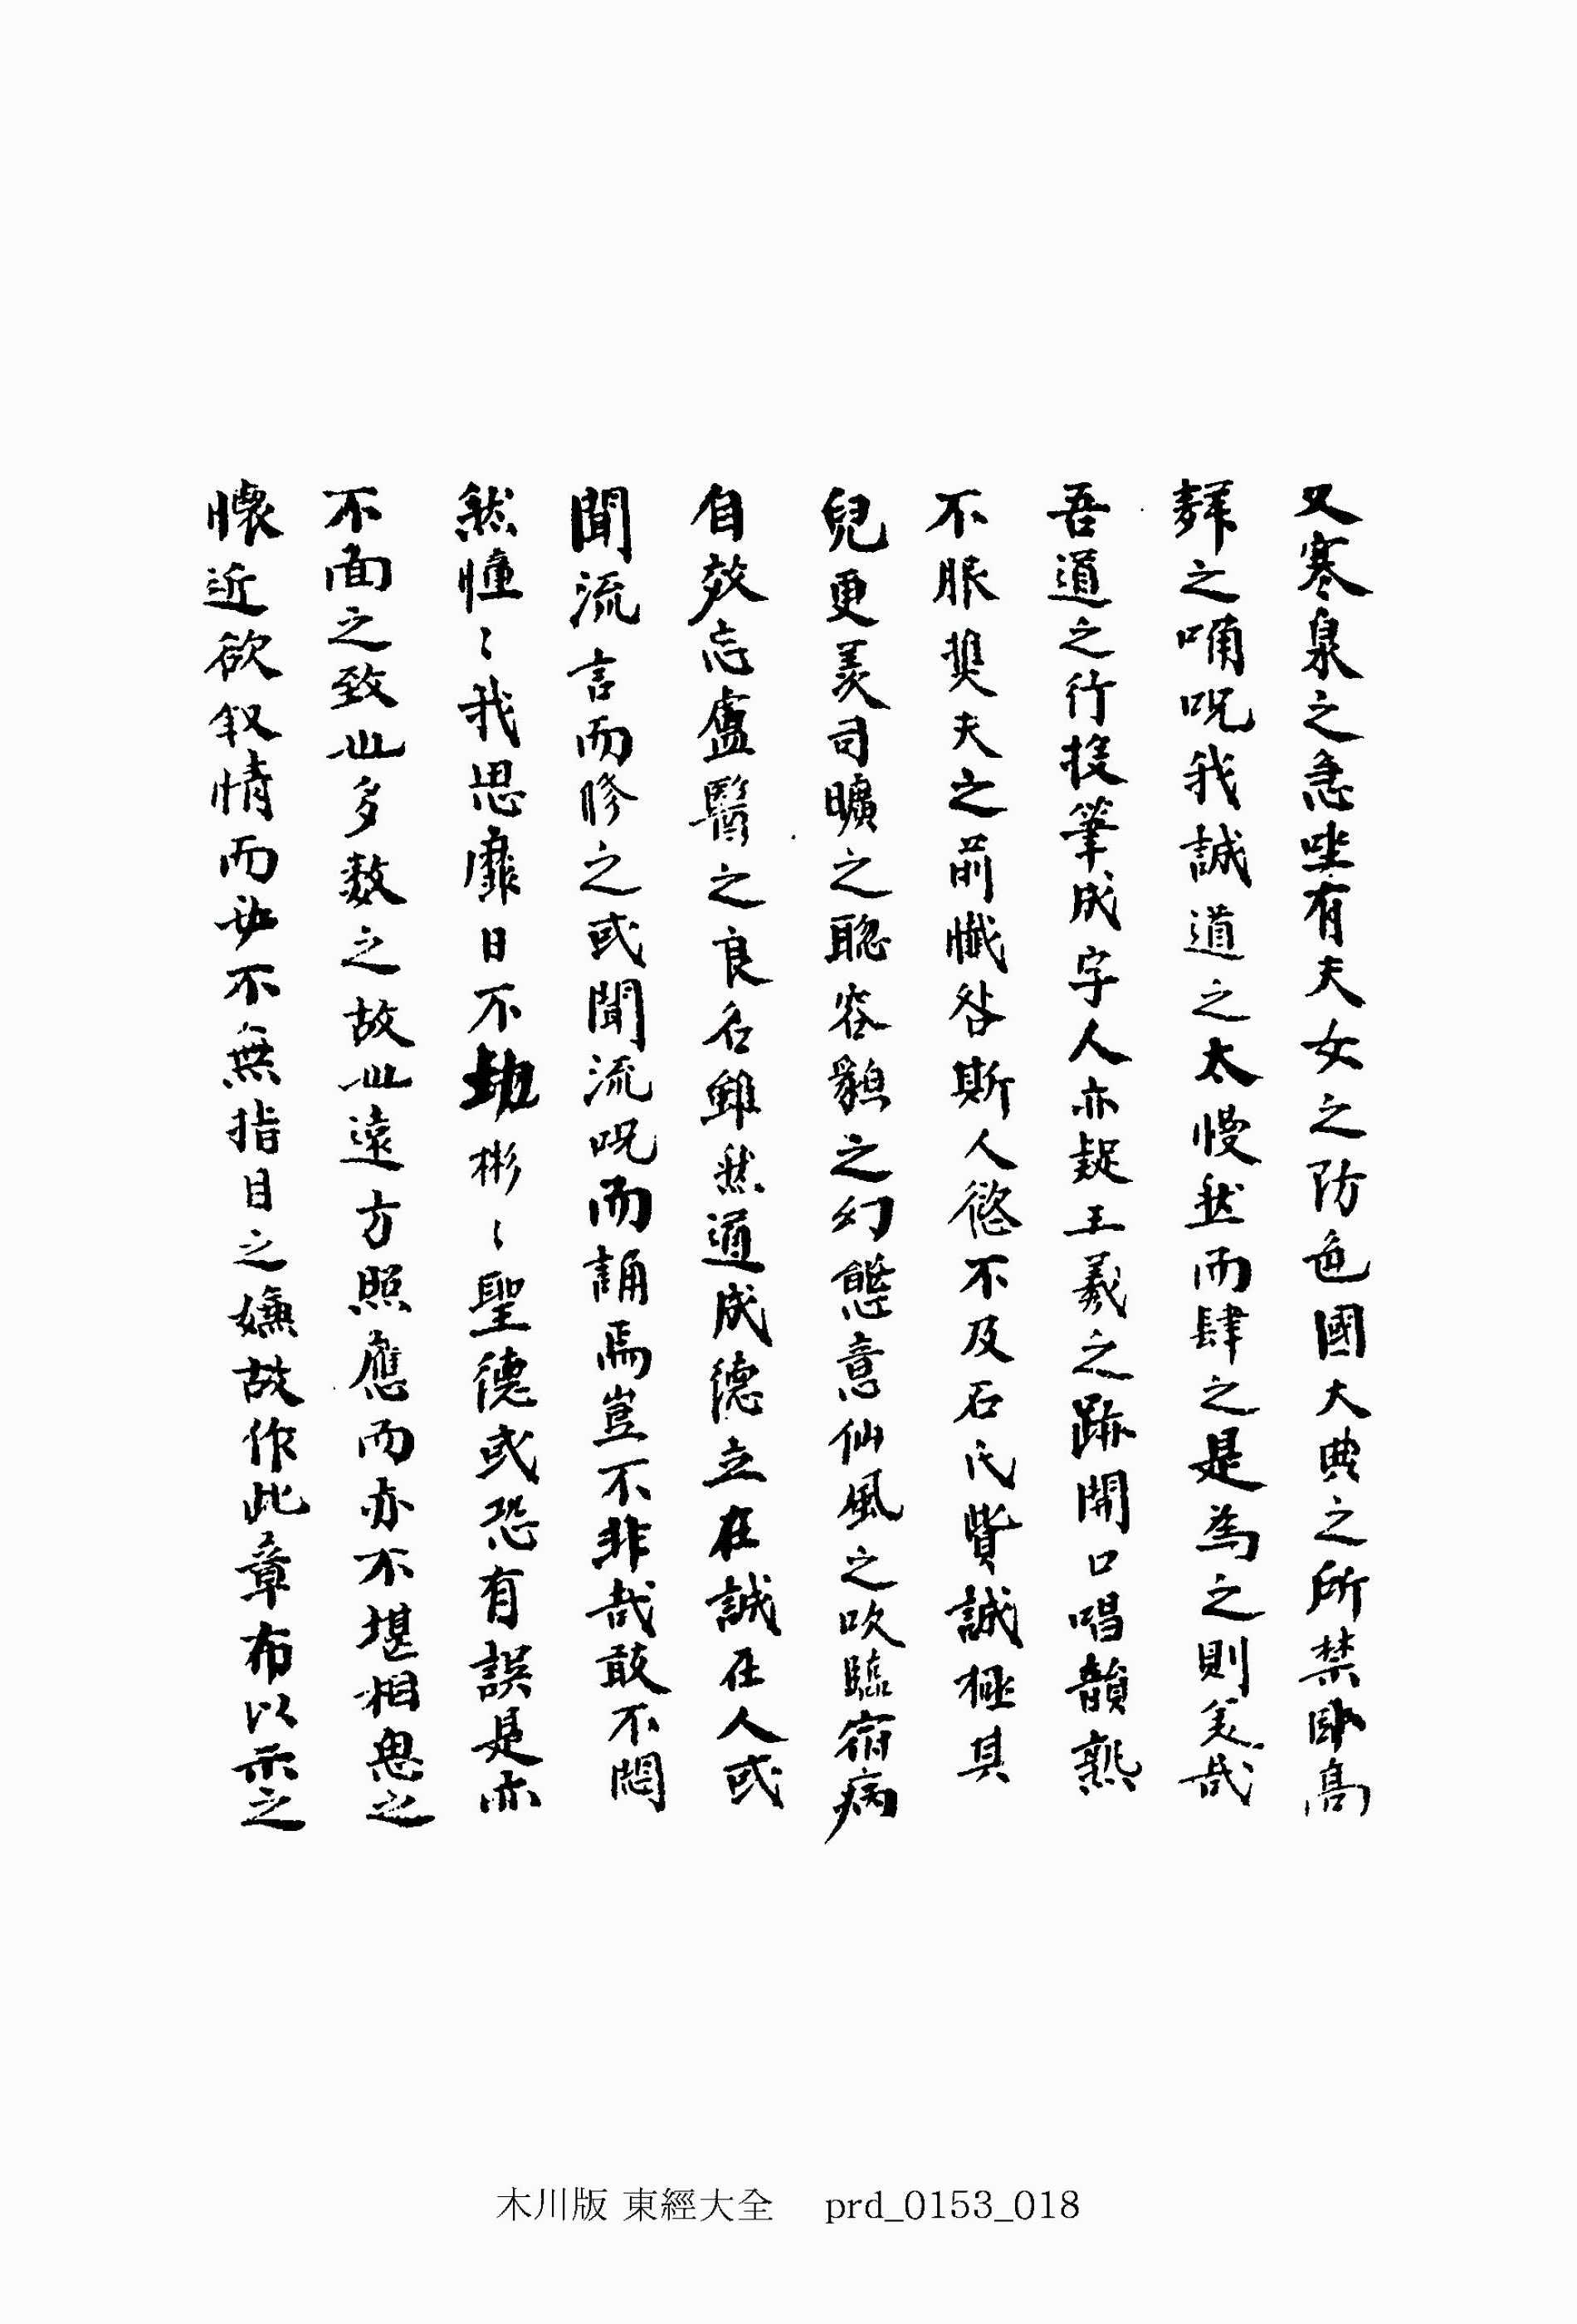 又寒泉之急唑有夫女之防色國大典之所禁臥高
聲之唷呪我誠道之太慢然而肆之是為之則美哉
吾道之行投筆成字人亦疑王羲之跡開口唱韻孰
不服樵夫之前懺咎斯人慾不及石氏貲誠極其
兒更羨司曠之聰容貌之幻態意仙風之吹臨宿病
自效忘盧醫之良名雖然道成德立在誠在人或
聞流言而修之或聞流呪而誦焉豈不非哉敢不悶
然憧〻我思靡日不切彬〻聖德或恐有誤是亦
不面之致也多数之故也遠方照應而亦不堪相思之
懷近欲叙情而必不無指目之嫌故作此章布以示之
木川版 東經大全 prd_0153_018